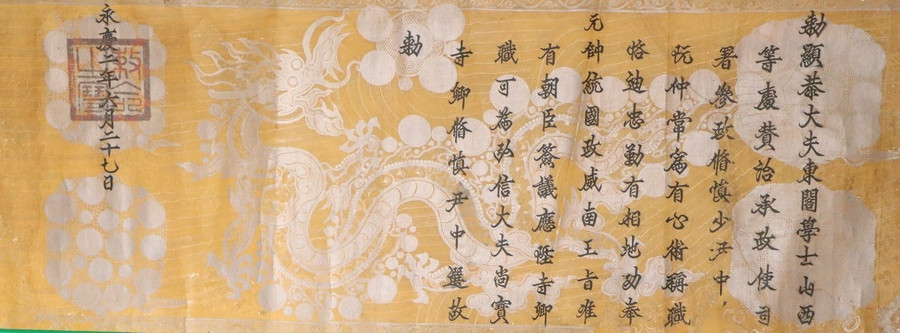 勅顯恭大夫東閣學士山西
等處贊治承政使司
署參政脩慎少尹中
阮仲常為有心術稱職
恪迪忠勤有相地功奉
元帥統國政威南王旨准
有朝臣僉議應陞寺卿
職可為弘信大夫尚寶
寺卿脩慎尹中選故
勅
永慶二年六月二十七日
勅命之寶